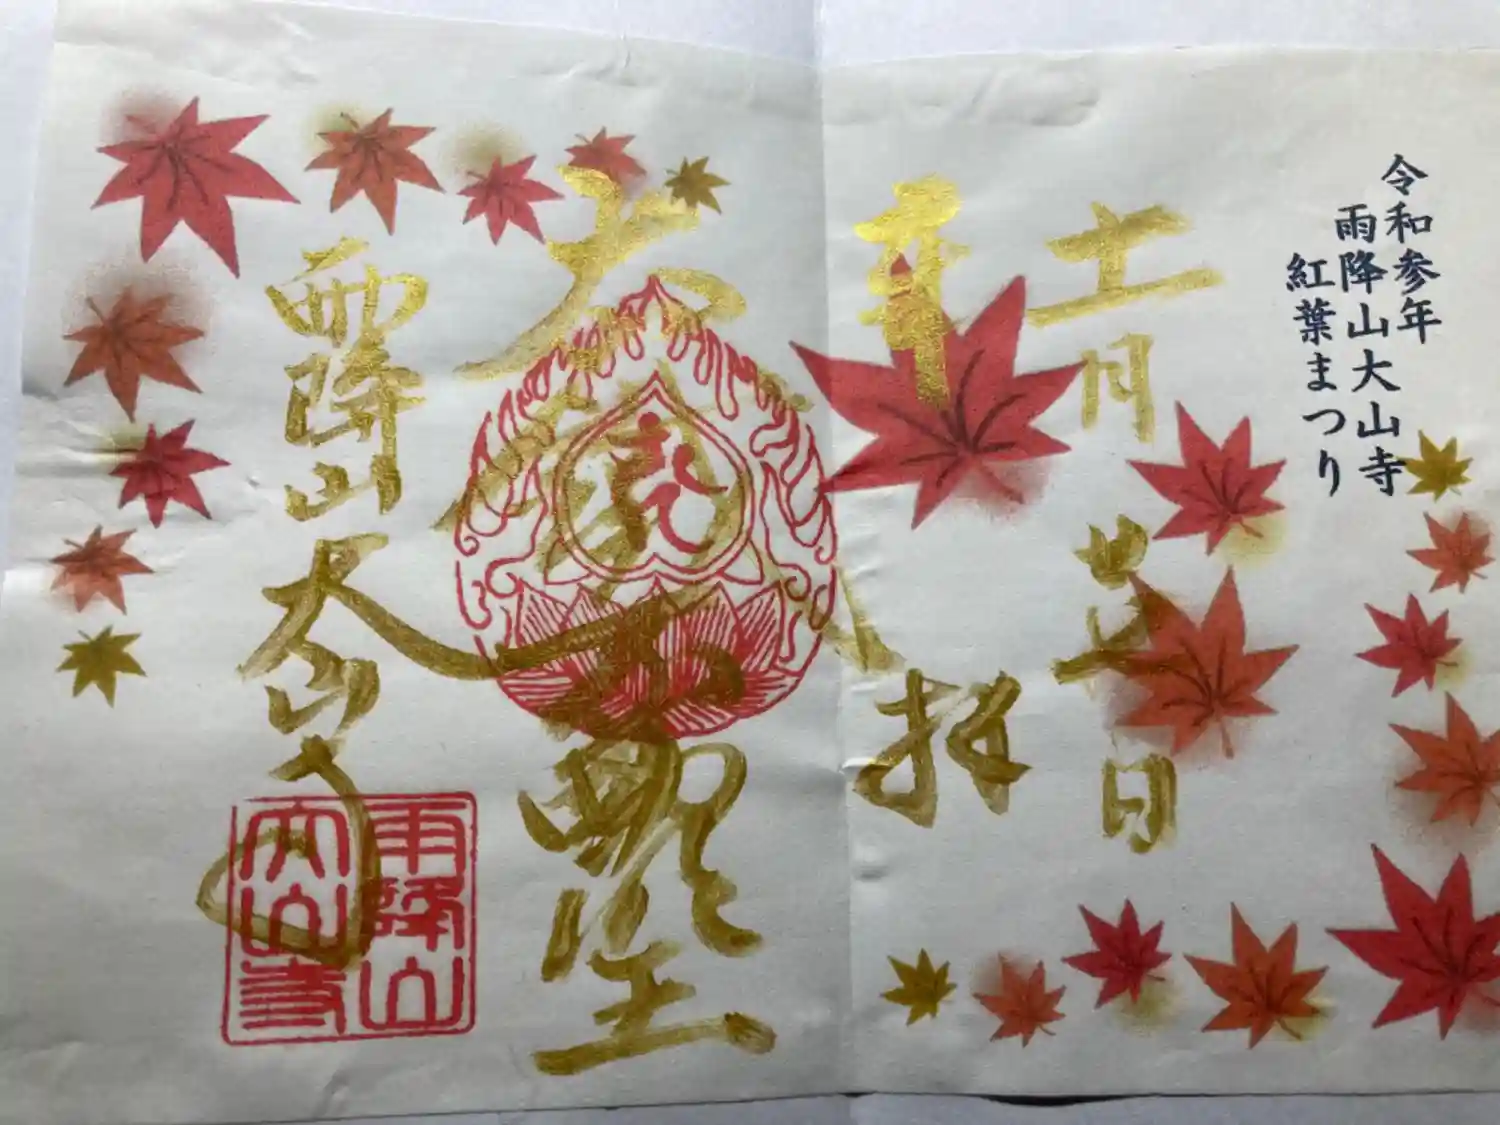 令和参年
雨降山大山寺
紅葉まつり
十一月
日
奉拝
大
雨降山大山寺
雨降山
大山寺